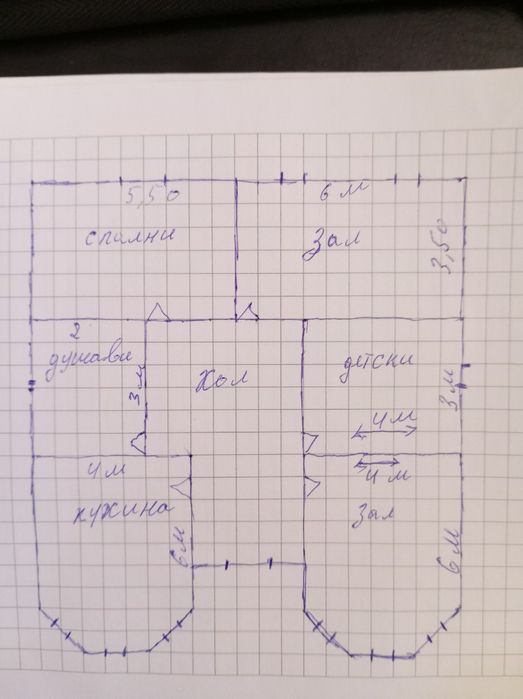 5,50
6 м
спални
Зал
3,50
2
душави
3 м
Хол
детски
3 м
4 м
4 м
4 м
кухина
Зал
6 м
6 м